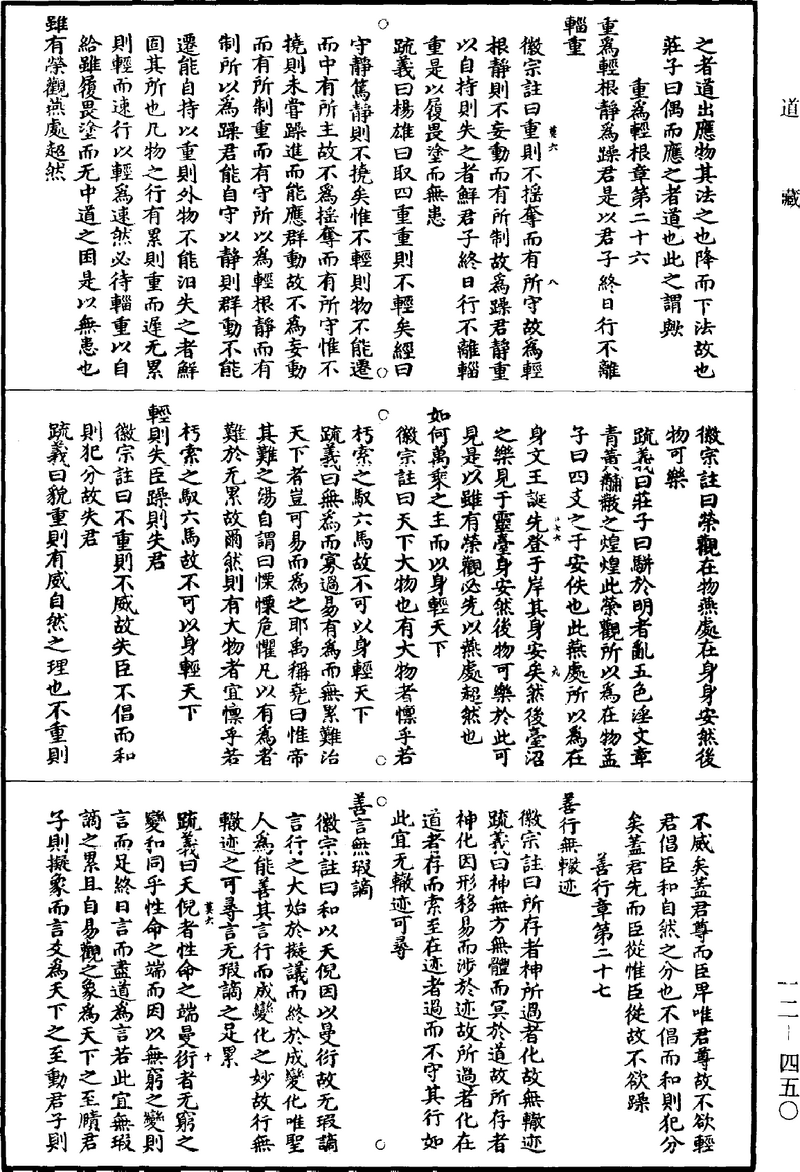 道藏
之者道出應物其法之也降而下法故也
莊子曰偶而應之者道也此之謂歟
重為輕根章第二十六
重為輕根靜為躁君是以君子終日行不離
輜重
徽宗註曰重則不搖奪而有所守故為輕
根靜則不妄動而有所制故為躁君靜重
以自持則失之者鮮君子終日行不離輜
重是以履畏塗而無患
疏義曰楊雄曰取四重重則不輕矣經曰
守靜篤靜則不撓矣惟不輕則物不能遷
而中有所主故不為搖奪而有所守惟不
撓則未嘗躁進而能應群動故不為妄動
而有所制重而有守所以為輕根靜而有
制所以為躁君能自守以靜則群動不能
遷能自持以重則外物不能汩失之者鮮
固其所也凡物之行有累則重而遲无累
則輕而速行以輕為速然必待輜重以自
給雖履畏塗而无中道之困是以無患也
雖有榮觀燕處超然
徽宗註曰榮觀在物燕處在身身安然後
物可樂
疏義曰莊子曰駢於明者亂五色淫文章
青黃黼黻之煌煌此榮觀所以為在物孟
子曰四支之于安佚也此燕處所以為在
身文王誕先登于岸其身安矣然後臺沼
之樂見于靈臺身安然後物可樂於此可
見是以雖有榮觀必先以燕處超然也
如何萬乘之主而以身輕天下
徽宗註曰天下大物也有大物者懍乎若
朽索之馭六馬故不可以身輕天下
疏義曰無為而寡過易有為而無累難治
天下者豈可易而為之耶禹稱堯曰惟帝
其難之湯自謂曰慄慄危懼凡以有為者
難於无累故爾然則有大物者宜懍乎若
朽索之馭六馬故不可以身輕天下
輕則失臣躁則失君
徽宗註曰不重則不威故失臣不倡而和
則犯分故失君
疏義曰貌重則有威自然之理也不重則
不威矣蓋君尊而臣卑唯君尊故不欲輕
君倡臣和自然之分也不倡而和則犯分
矣蓋君先而臣從惟臣從故不欲躁
善行章第二十七
善行無轍迹
徽宗註曰所存者神所過者化故無轍迹
疏義曰神無方無體而冥於道故所存者
神化因形移易而涉於迹故所過者化在
道者存而索至在迹者過而不守其行如
此宜无轍迹可尋
善言無瑕謫
徽宗註曰和以天倪因以曼衍故无瑕謫
言行之大始於擬議而終於成變化唯聖
人為能善其言行而成變化之妙故行無
轍迹之可尋言无瑕謫之足累
疏義曰天倪者性命之端曼衍者无窮之
變和同乎性命之端而因以無窮之變則
言而足終日言而盡道為言若此宜無瑕
謫之累且自易觀之象為天下之至賾君
子則擬象而言爻為天下之至動君子則
一二-四五〇